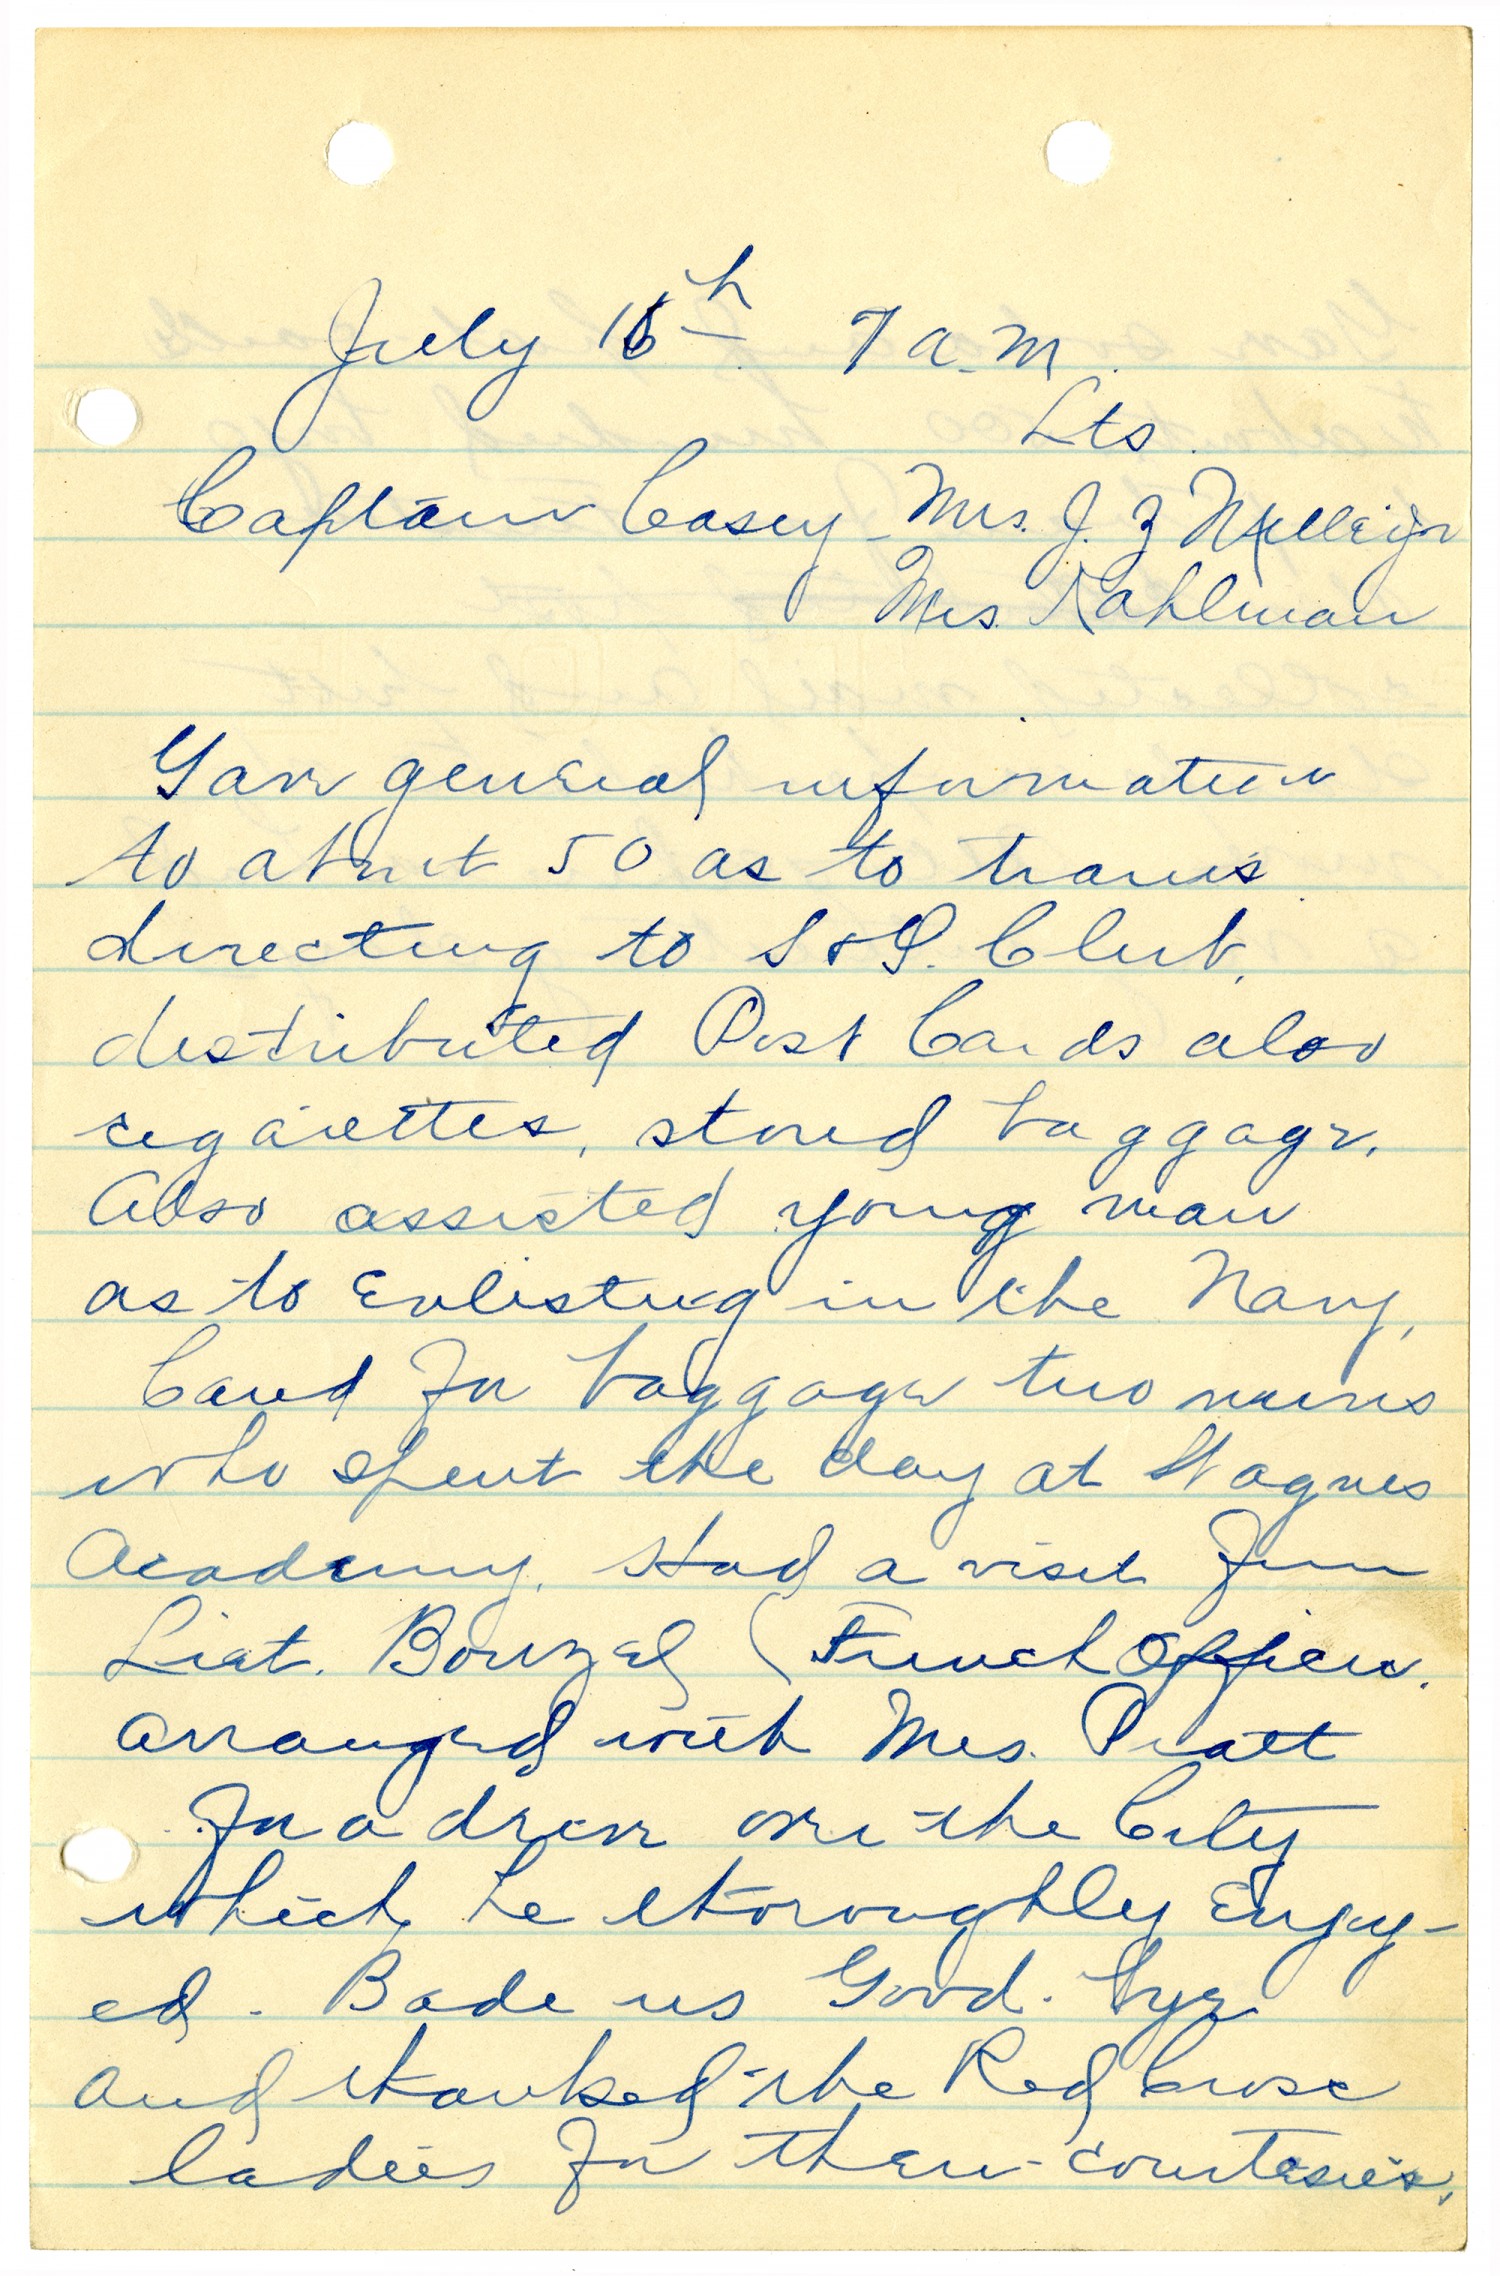 July 16th 7 a.m.
Lts.
Captain Casey - Mrs. J. Z
Mrs. Kahlman
Gave general information
to about 50 as to trains
directing to S & S. Club,
distributed Post Cards also
cigarettes, stored baggage.
Also assisted young man
as to Enlisting in the Navy,
Cared for baggage two nuns
who spent the day at St Agnes
Academy. Had a visit from
Liet. Bouzed (French Officer.
arranged with Mrs. Pratt
for a drive over the City
which he thoroughly Enjoy-
ed. Bade us Good. bye
and thanked the Red Cross
ladies for their courtesies.